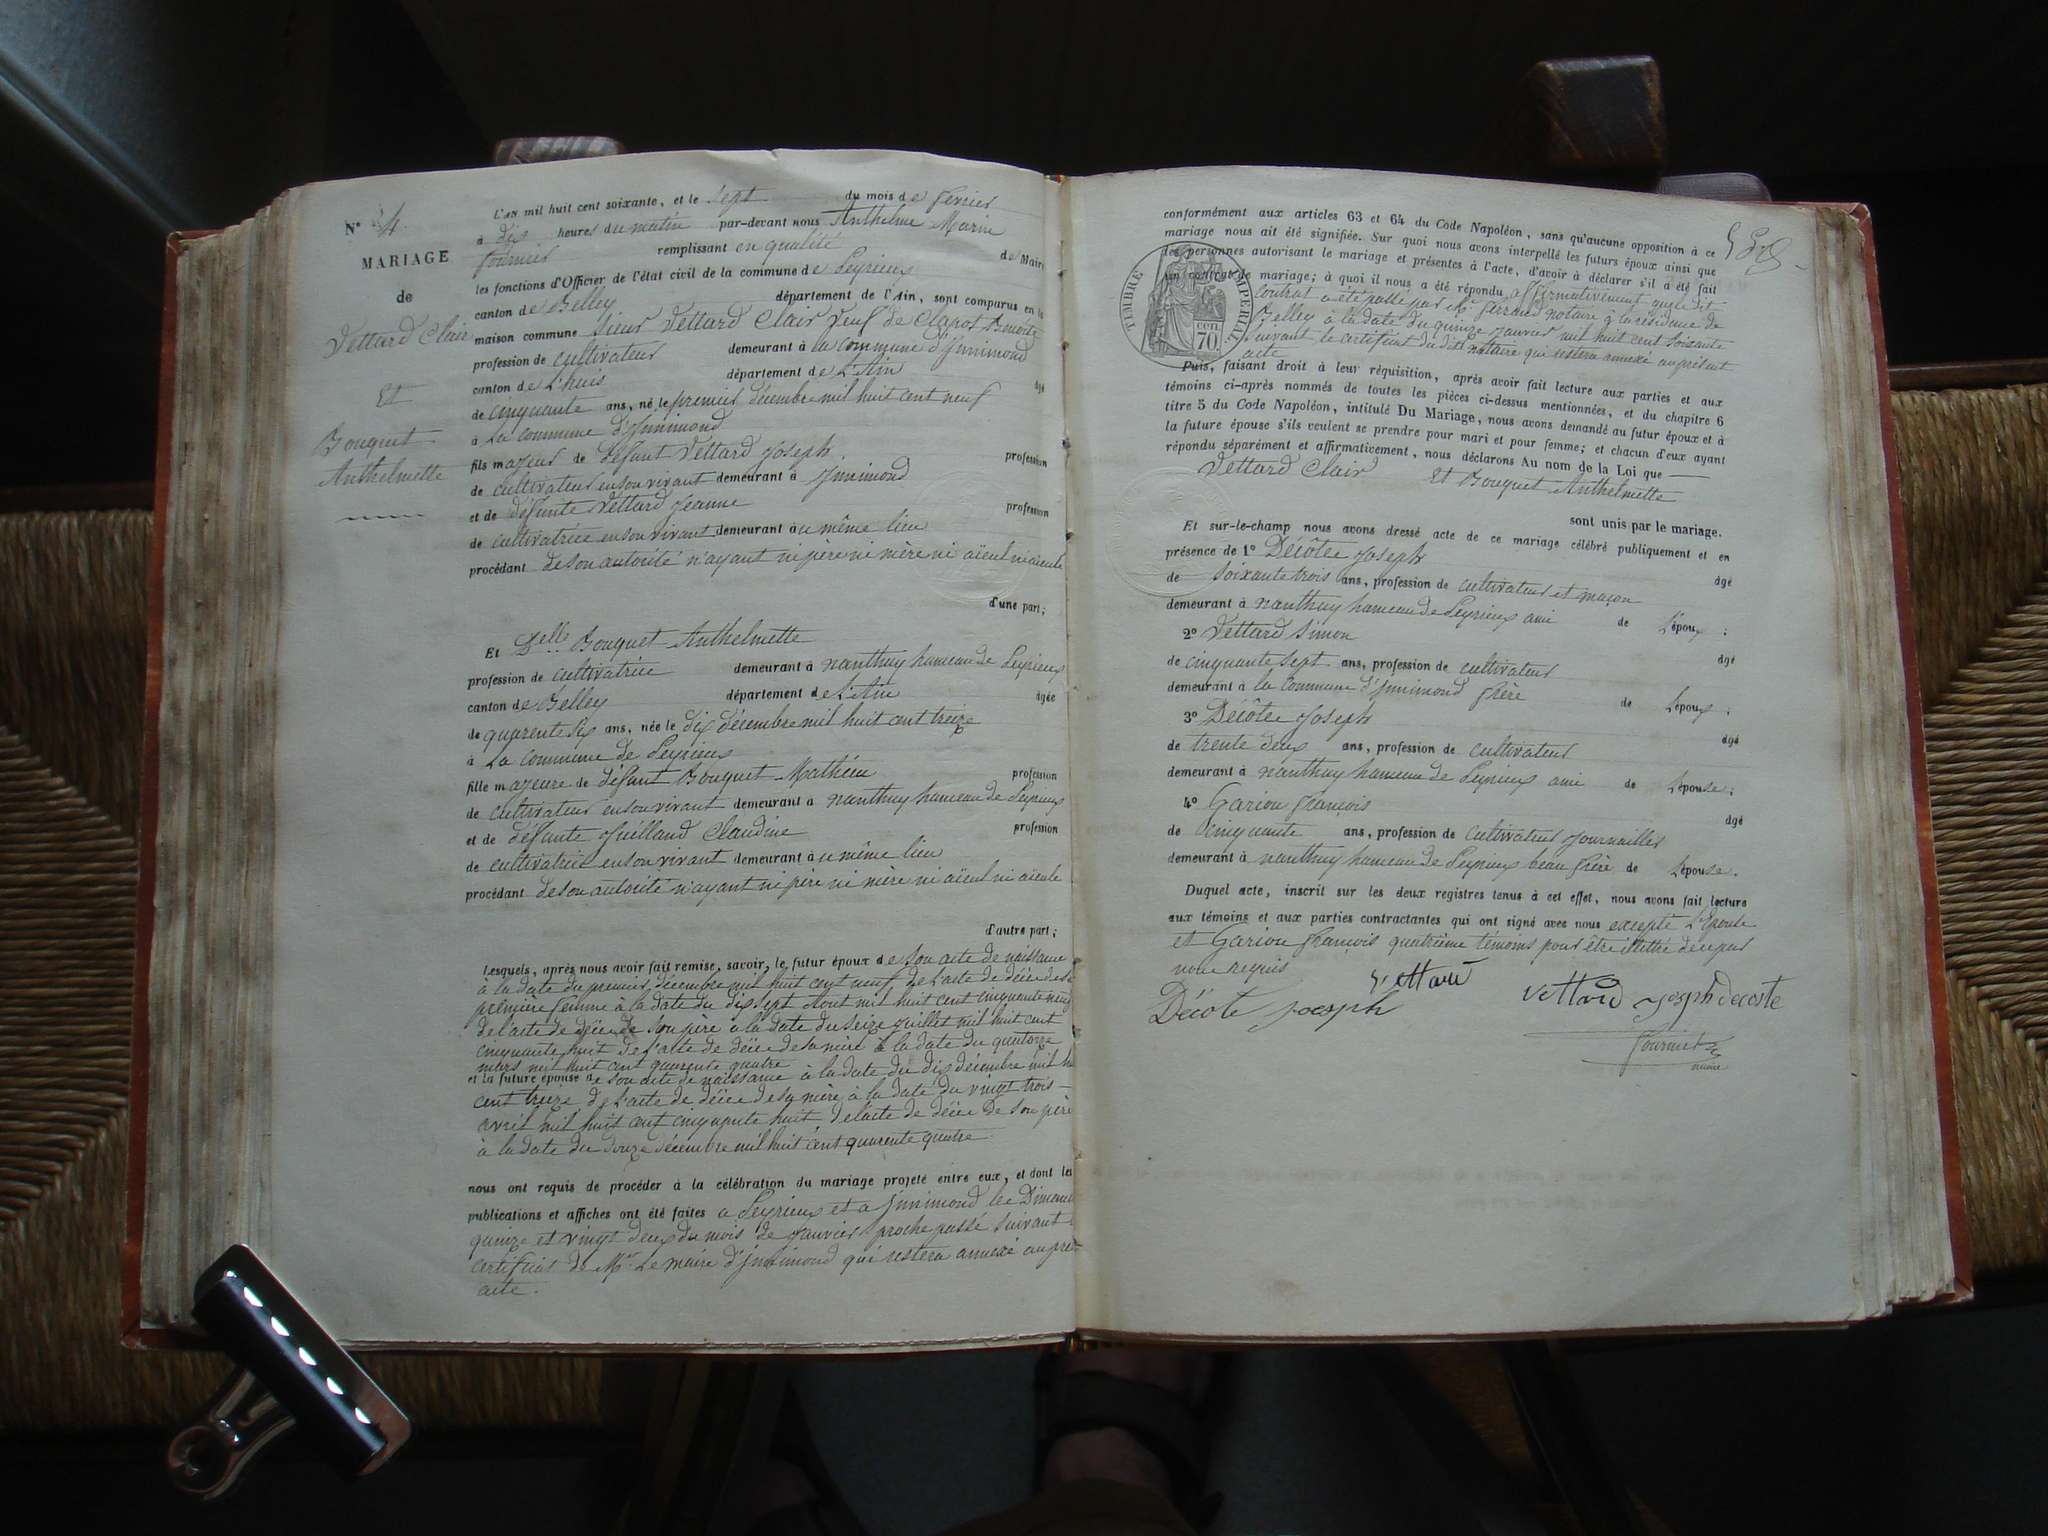 N° 4
MARIAGE
de
Vettard Clair
Et
Bouquet
Anthelmette
L'AN mil huit cent soixante, et le sept du mois de février
à dix heures du matin par-devant nous Anthelme Marin
fournier remplissant en qualité de Maire
les fonctions d'Officier de l'état civil de la commune de Peyrieux
canton de Belley département de l'Ain, sont comparus en la
maison commune Sieur Vettard Clair Veuf de Clapot Benoite
profession de cultivateur demeurant à la commune d'Innimond
canton de L'huis département de L'Ain âgé
de cinquante ans, né le premier décembre mil huit cent neuf
à La commune d'Innimond
fils majeur de défunt Vettard Joseph profession
de cultivateur en son vivant demeurant à Innimond
et de défunte Vettard Jeanne profession
de cultivatrice en son vivant demeurant au même lieu
procédant de son autorité n'ayant ni père ni mère ni aïeul ni aïeule
d'une part;
Et Delle Bouquet Anthelmette
profession de cultivatrice demeurant à nanthuy hameau de Peyrieux
canton de Belley département de L'Ain âgée
de quarente six ans, née le dix décembre mil huit cent treize
à La commune de Peyrieux
fille majeure de défunt Bouquet Mathieu profession
de cultivateur en son vivant demeurant à nanthuy hameau de Peyrieux
et de défunte Juilland Claudine profession
de cultivatrice en son vivant demeurant au même lieu
procédant de son autorité n'ayant ni père ni mère ni aïeul ni aïeule
d'autre part;
Lesquels, après nous avoir fait remise, savoir, le futur époux de son acte de naissance
à la date du premier décembre mil huit cent neuf, de l'acte de décès de sa
première femme à la date du dix sept Aout mil huit cent cinquante neuf
de l'acte de décès de son père à la date du seize juillet mil huit cent
cinquante huit de l'acte de décès de sa mère à la date du quatorze
mars mil huit cent quarente quatre
et la future épouse de son acte de naissance à la date du dix décembre mil hui
cent treize de l'acte de décès de sa mère à la date du vingt trois
avril mil huit cent cinquante huit de l'acte de décès de son père
à la date du douze décembre mil huit cent quarente quatre
nous ont requis de procéder à la célébration du mariage projeté entre eux, et dont les
publications et affiches ont été faites a Peyrieux et a Innimond les Dimanc
quinze et vingt deux du mois de Janvier proche passé suivant
certificat de Mr Le maire d'Innimond qui restera annexé au pré
acte.
conformément aux articles 63 et 64 du Code Napoléon, sans qu'aucune opposition à ce
mariage nous ait été signifiée. Sur quoi nous avons interpellé les futurs époux ainsi que
les personnes autorisant le mariage et présentes à l'acte, d'avoir à déclarer s'il a été fait
un contrat de mariage; à quoi il nous a été répondu affirmativement que le dit
Contrat a été passé par Me ferrand notaire à la résidence de
Belley à la date du quinze Janvier mil huit cent soixante
suivant le certificat du dit notaire qui restera annexé au présent
acte
TIMBRE IMPERIAL
CEN.
70
Puis, faisant droit à leur réquisition, après avoir fait lecture aux parties et aux
témoins ci-après nommés de toutes les pièces ci-dessus mentionnées, et du chapitre 6
titre 5 du Code Napoléon, intitulé Du Mariage, nous avons demandé au futur époux et à
la future épouse s'ils veulent se prendre pour mari et pour femme; et chacun d'eux ayant
répondu séparément et affirmativement, nous déclarons Au nom de la Loi que
Vettard Clair Et Bouquet Anthelmette
sont unis par le mariage.
Et sur-le-champ nous avons dressé acte de ce mariage célébré publiquement et en
présence de 1° Décôte Joseph âgé
de soixante trois ans, profession de cultivateur et maçon
demeurant à nanthuy hameau de Peyrieux ami de L'époux;
2° Vettard Simon âgé
de cinquante sept ans, profession de cultivateur
demeurant à la commune d'Innimond frère de L'époux;
3° Décôte Joseph âgé
de trente deux ans, profession de cultivateur
demeurant à nanthuy hameau de Peyrieux ami de L'épouse;
4° Garion françois âgé
de cinquante ans, profession de cultivateur journaillier
demeurant à nanthuy hameau de Peyrieux beau frère de L'épouse.
Duquel acte, inscrit sur les deux registres tenus à cet effet, nous avons fait lecture
aux témoins et aux parties contractantes qui ont signé avec nous excepté L'Epouse
et Garion françois quatrième témoins pour être illettré de ce par
nous requis
Vettard
Vettard Joseph decoste
Décote Joseph
Fournier
maire